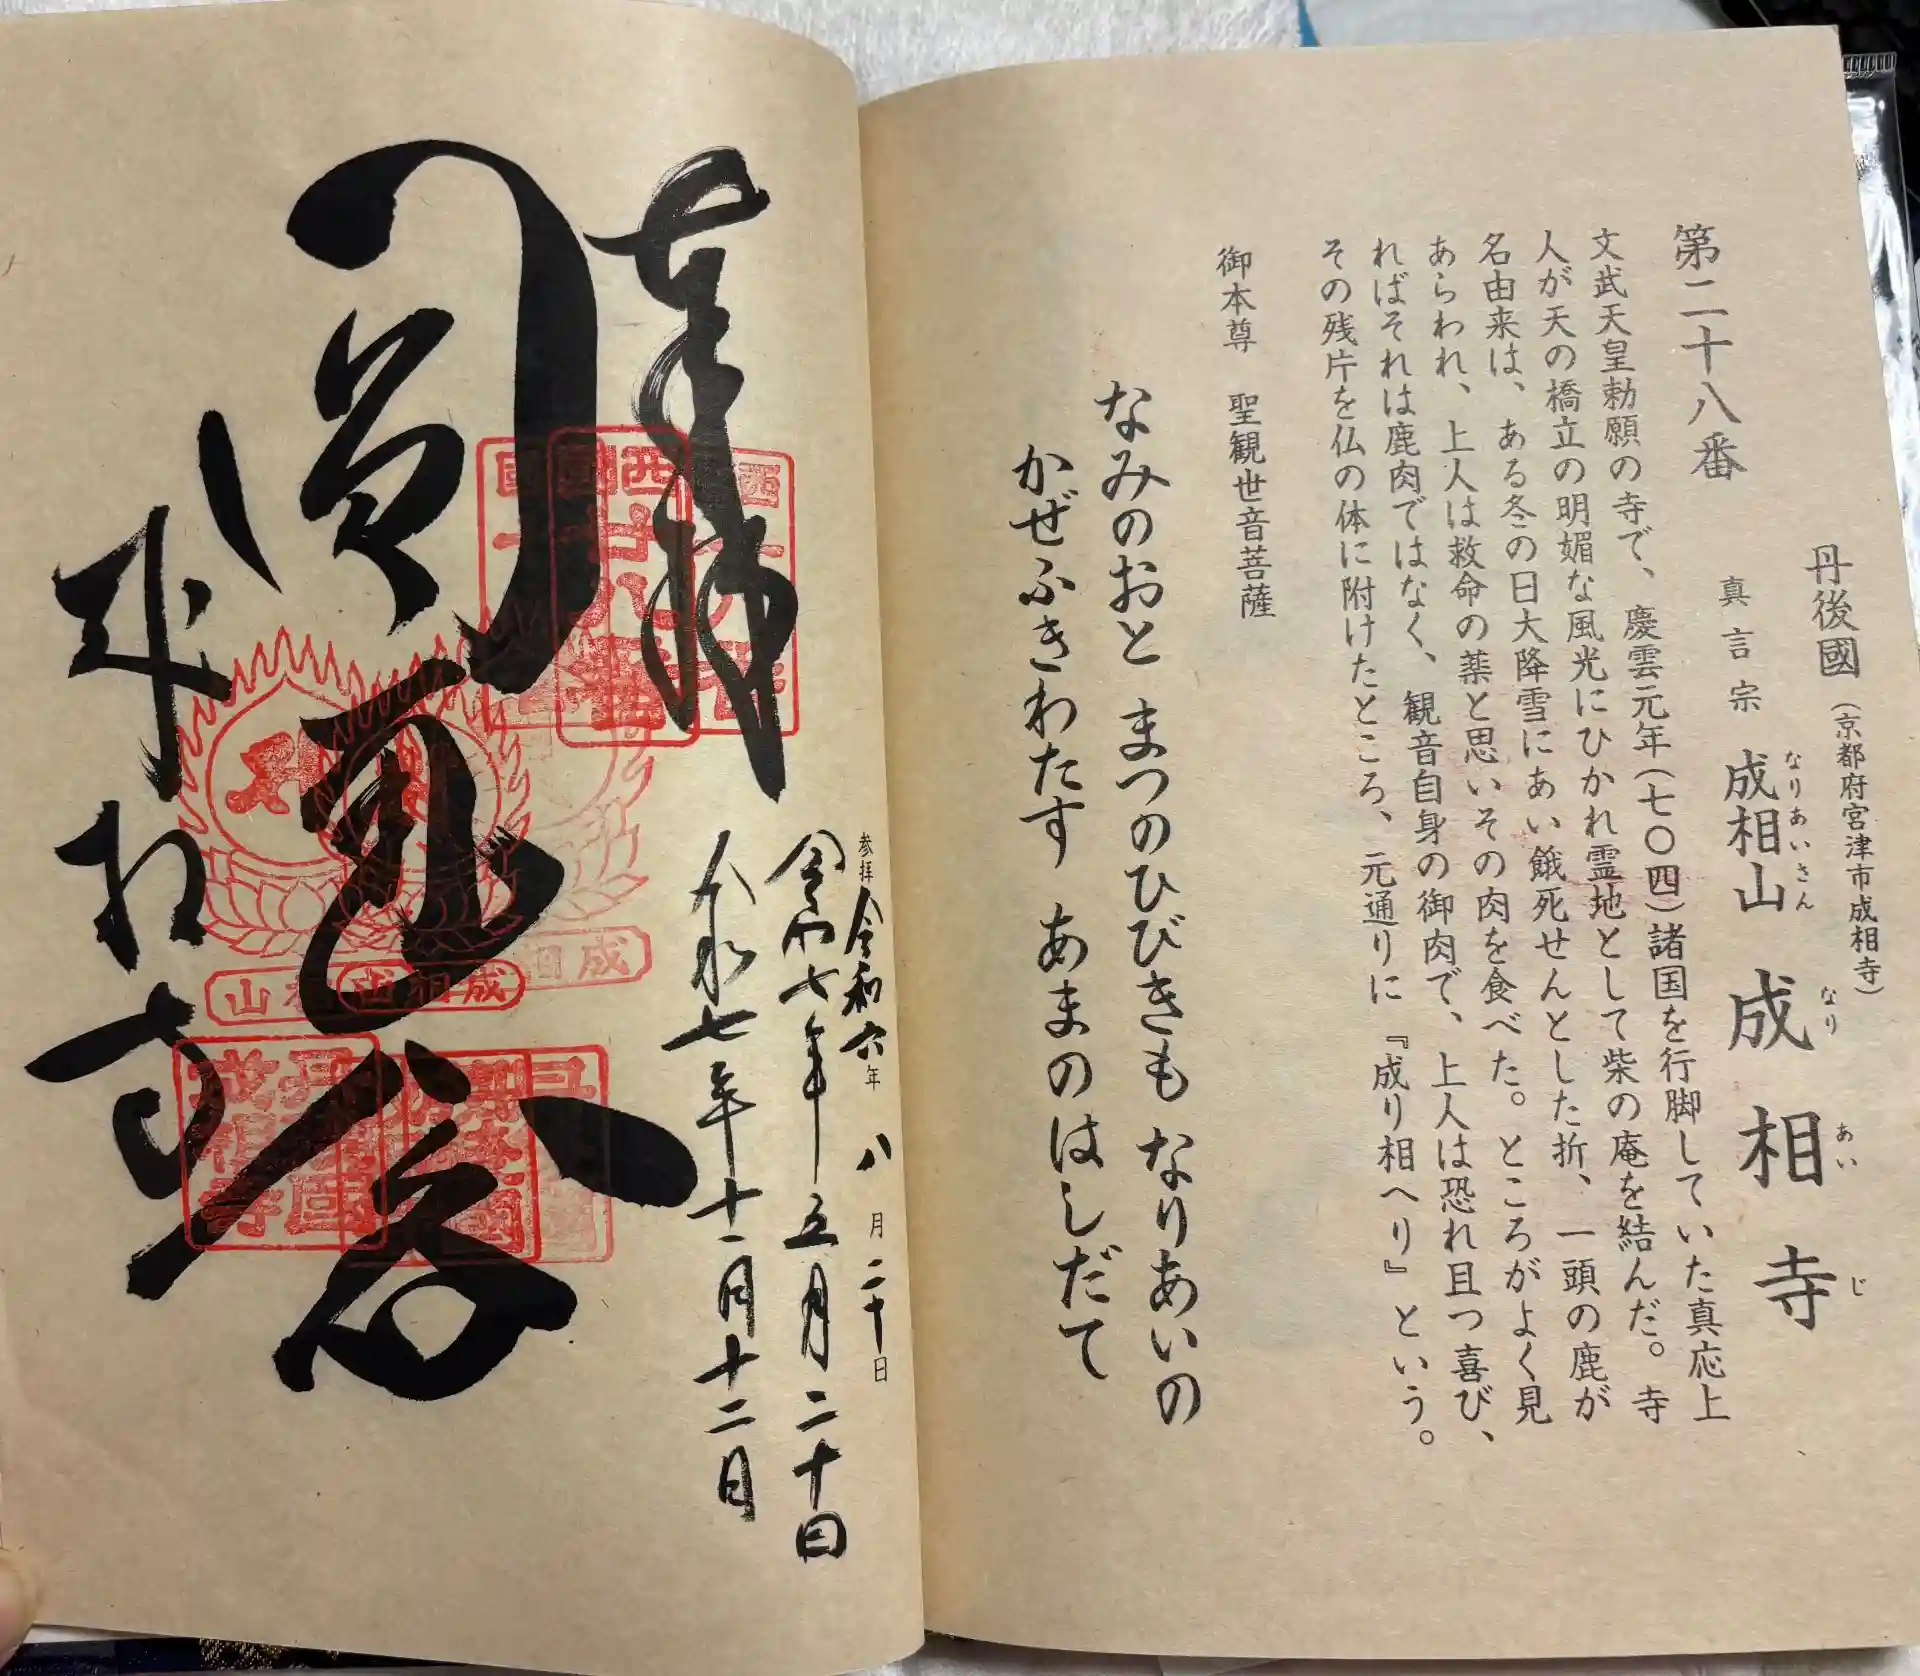 第二十八番
丹後國(京都府宮津市成相寺)
真言宗 成相山 成相寺
なりあいさん なり あい じ
文武天皇勅願の寺で、慶雲元年(七〇四)諸国を行脚していた真応上
人が天の橋立の明媚な風光にひかれ霊地として柴の庵を結んだ。寺
名由来は、ある冬の日大降雪にあい餓死せんとした折、一頭の鹿が
あらわれ、上人は救命の薬と思いその肉を食べた。ところがよく見
ればそれは鹿肉ではなく、観音自身の御肉で、上人は恐れ且つ喜び、
その残片を仏の体に附けたところ、元通りに『成り相へり』という。
御本尊 聖観世音菩薩
なみのおと まつのひびきも なりあいの
かぜふきわたす あまのはしだて
参拝 令和六年 八月二十日
令和七年五月二十日
令和七年十一月十二日
奉拝
西國
廿八番
成相山
成相寺